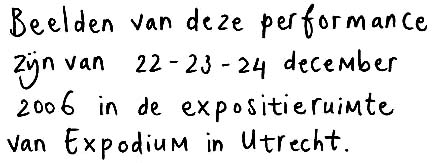 Beelden van deze performance
zijn van 22-23-24 december
2006 in de expositieruimte
van Expodium in Utrecht.